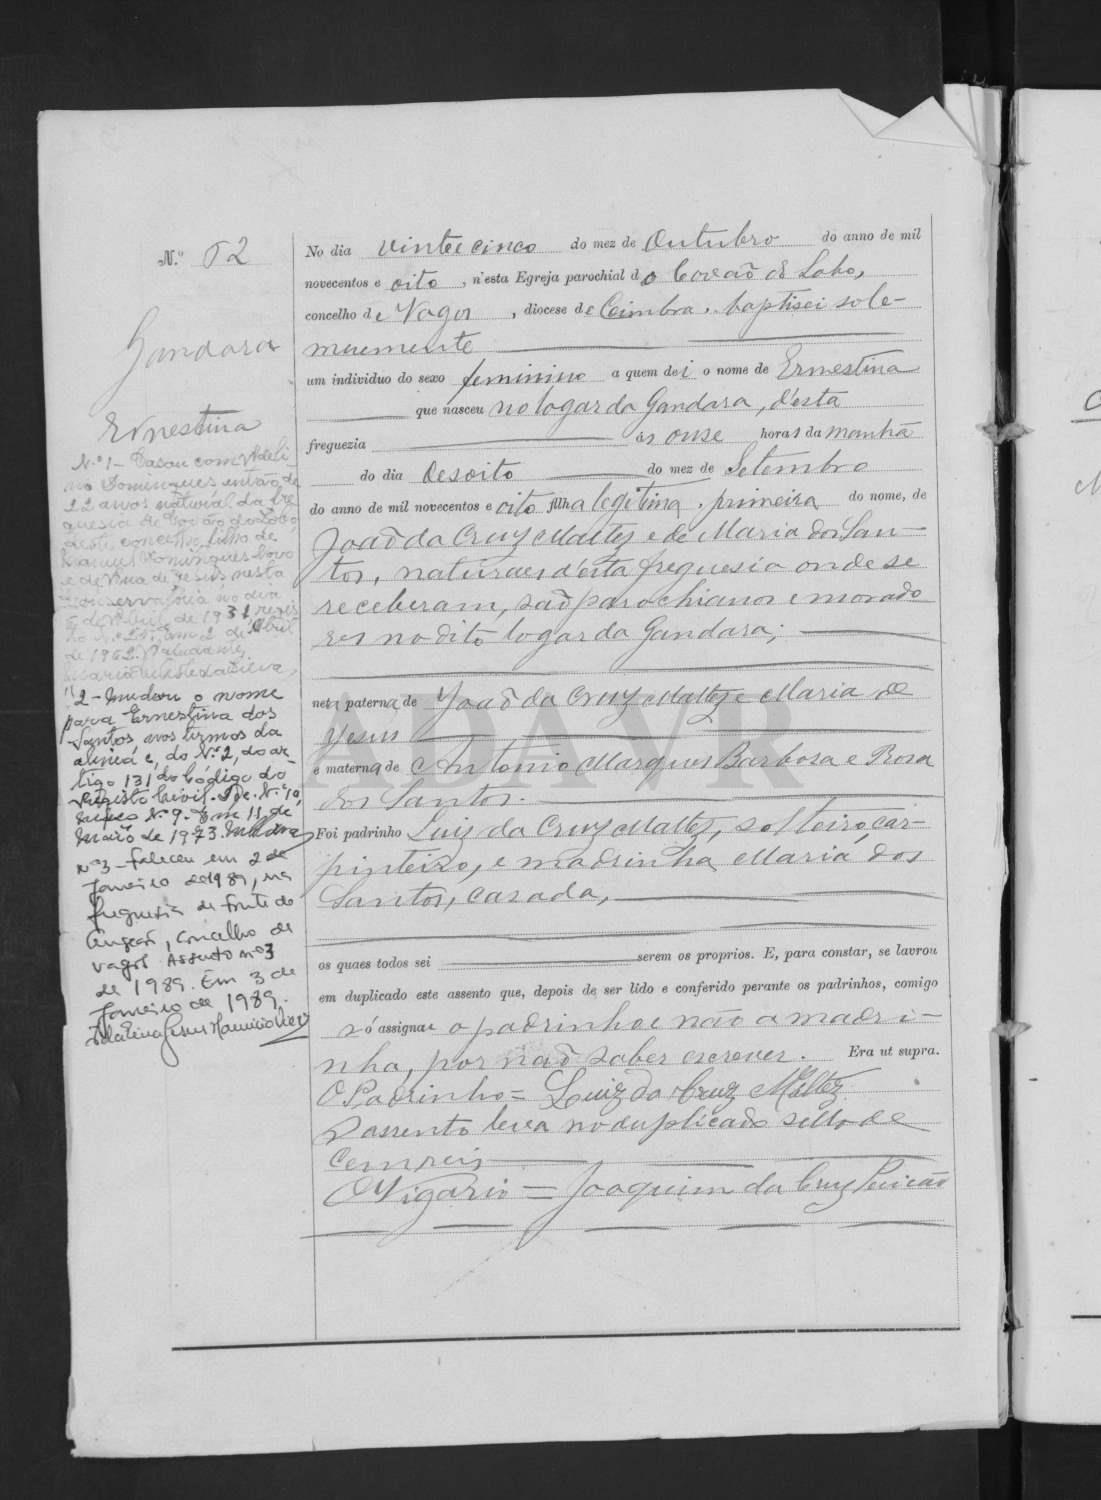 N.º 62
Gandara
Ernestina
Nº 1 - Casou com Adeli-
no Domingues então de
22 anos natural da fre
guesia de Covão do Lobo
deste concelho, filho de
Manuel Domingues Novo
e de Ana de Jesus nesta
Conservatória no dia
de Abril de 1931, regis
to Nº 25. Em 2 de Abril
de 1962.
Maria Celeste da Silva
2 - Mudou o nome
para Ernestina dos
Santos nos termos da
alinea e, do Nº 2, do ar-
tigo 131 do Código do
Registo Civil. Doc. Nº 10,
maço Nº 9. Em 11 de
Maio de 1973.
Nº 3 - Faleceu em 2 de
Janeiro de 1989, na
freguesia de Fonte de
Angeão, concelho de
Vagos Assento nº 3
de 1989. Em 3 de
Janeiro de 1989.
No dia vinte e cinco do mez de Outubro do anno de mil
novecentos e oito, n'esta Egreja parochial do Covaõ do Lobo,
concelho de Vagos, diocese de Coimbra, baptisei sole-
mnemente
um individuo do sexo feminino a quem dei o nome de Ernestina
que nasceu no logar da Gandara, d'esta
freguezia ás onse horas da manhã
do dia desoito do mez de Setembro
do anno de mil novecentos e oito filha legitima, primeira do nome, de
Joaõ da Cruz Maltez e de Maria dos San-
tos, naturaes d'esta freguesia onde se
receberam, saõ parochianos e morado
res no dito logar da Gandara;
neta paterna de Joaõ da Cruz Maltez e Maria de
Jesus
e materna de Antonio Marques Barbosa e Rosa
dos Santos.
Foi padrinho Luiz da Cruz Maltez, solteiro, car-
pinteiro, e madrinha Maria dos
Santos, casada,
os quaes todos sei serem os proprios. E, para constar, se lavrou
em duplicado este assento que, depois de ser lido e conferido perante os padrinhos, comigo
só assignae o padrinho e não a madri-
nha, por naõ saber escrever. Era ut supra.
O Padrinho = Luiz da Cruz Maltez
O assento leva no duplicado sello de
cem reis
O Vigario = Joaquim da Cruz
ADAVR